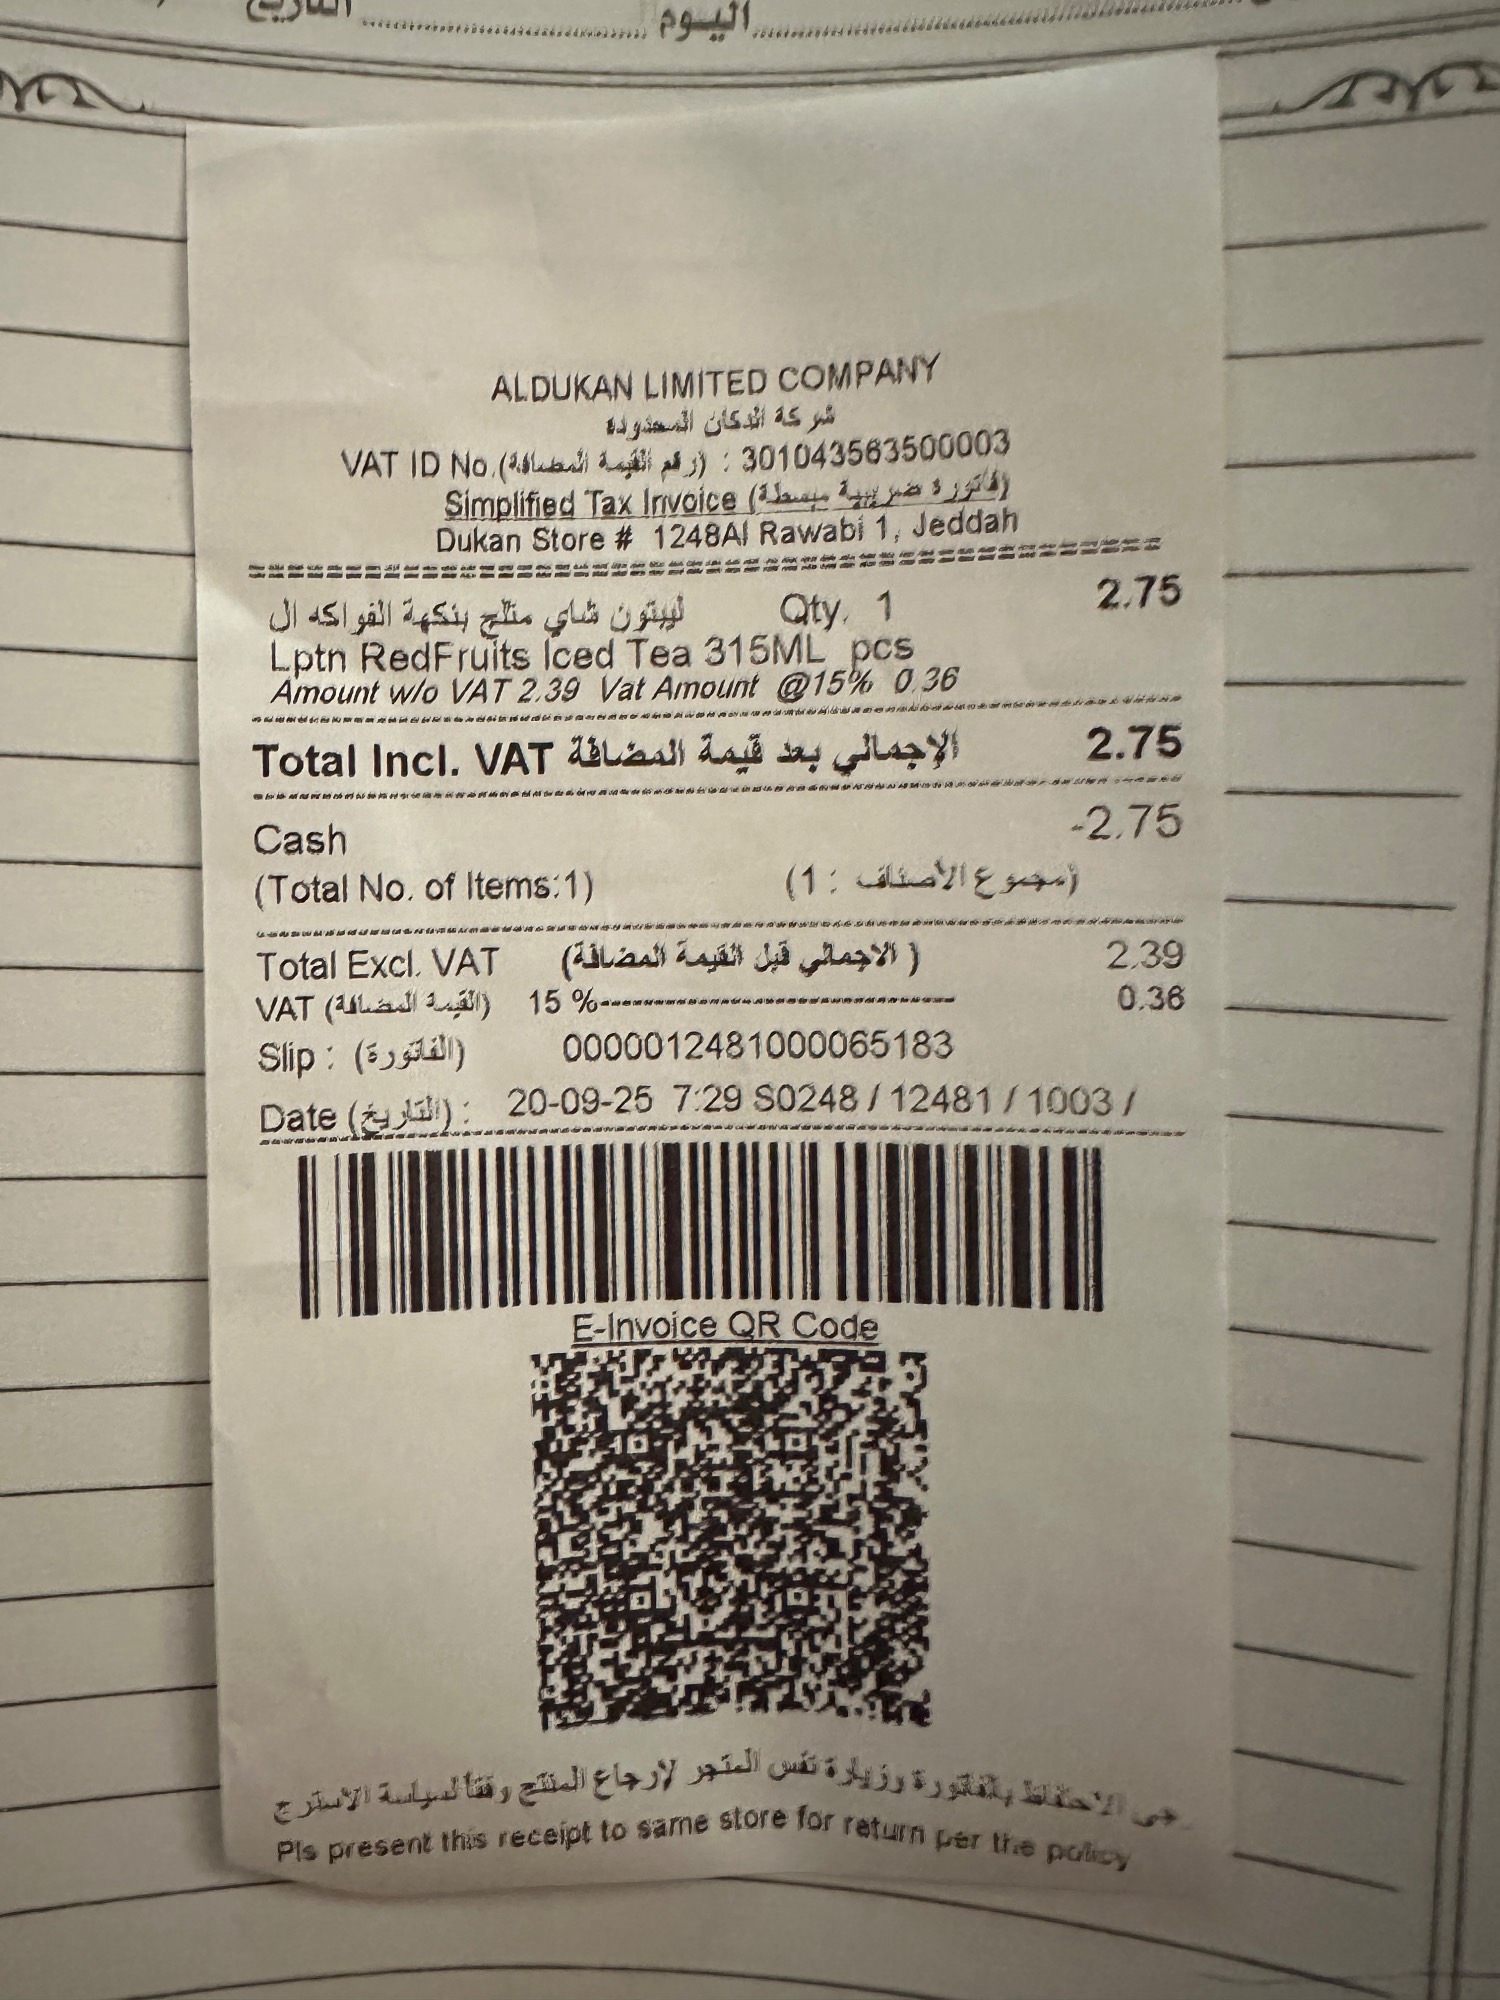 التاريخ ........ اليوم ........
ALDUKAN LIMITED COMPANY
شركة الدكان المحدودة
VAT ID No.(رقم القيمة المضافة) : 301043563500003
Simplified Tax Invoice (فاتورة ضريبية مبسطة)
Dukan Store # 1248Al Rawabi 1, Jeddah
ليبتون شاي مثلج بنكهة الفواكه ال Qty. 1 2.75
Lptn RedFruits Iced Tea 315ML pcs
Amount w/o VAT 2.39 Vat Amount @15% 0.36
Total Incl. VAT الإجمالي بعد قيمة المضافة 2.75
Cash -2.75
(Total No. of Items:1) (مجموع الأصناف : 1)
Total Excl. VAT (الاجمالي قبل القيمة المضافة ) 2.39
VAT (القيمة المضافة) 15 %-------------------------------- 0.36
Slip : (الفاتورة) 0000012481000065183
Date (التاريخ) : 20-09-25 7:29 S0248 / 12481 / 1003 /
E-Invoice QR Code
جى الاحتفاظ بالفاتورة وزيارة نفس المتجر لإرجاع المنتج وفقا لسياسة الاسترج
Pls present this receipt to same store for return per the policy